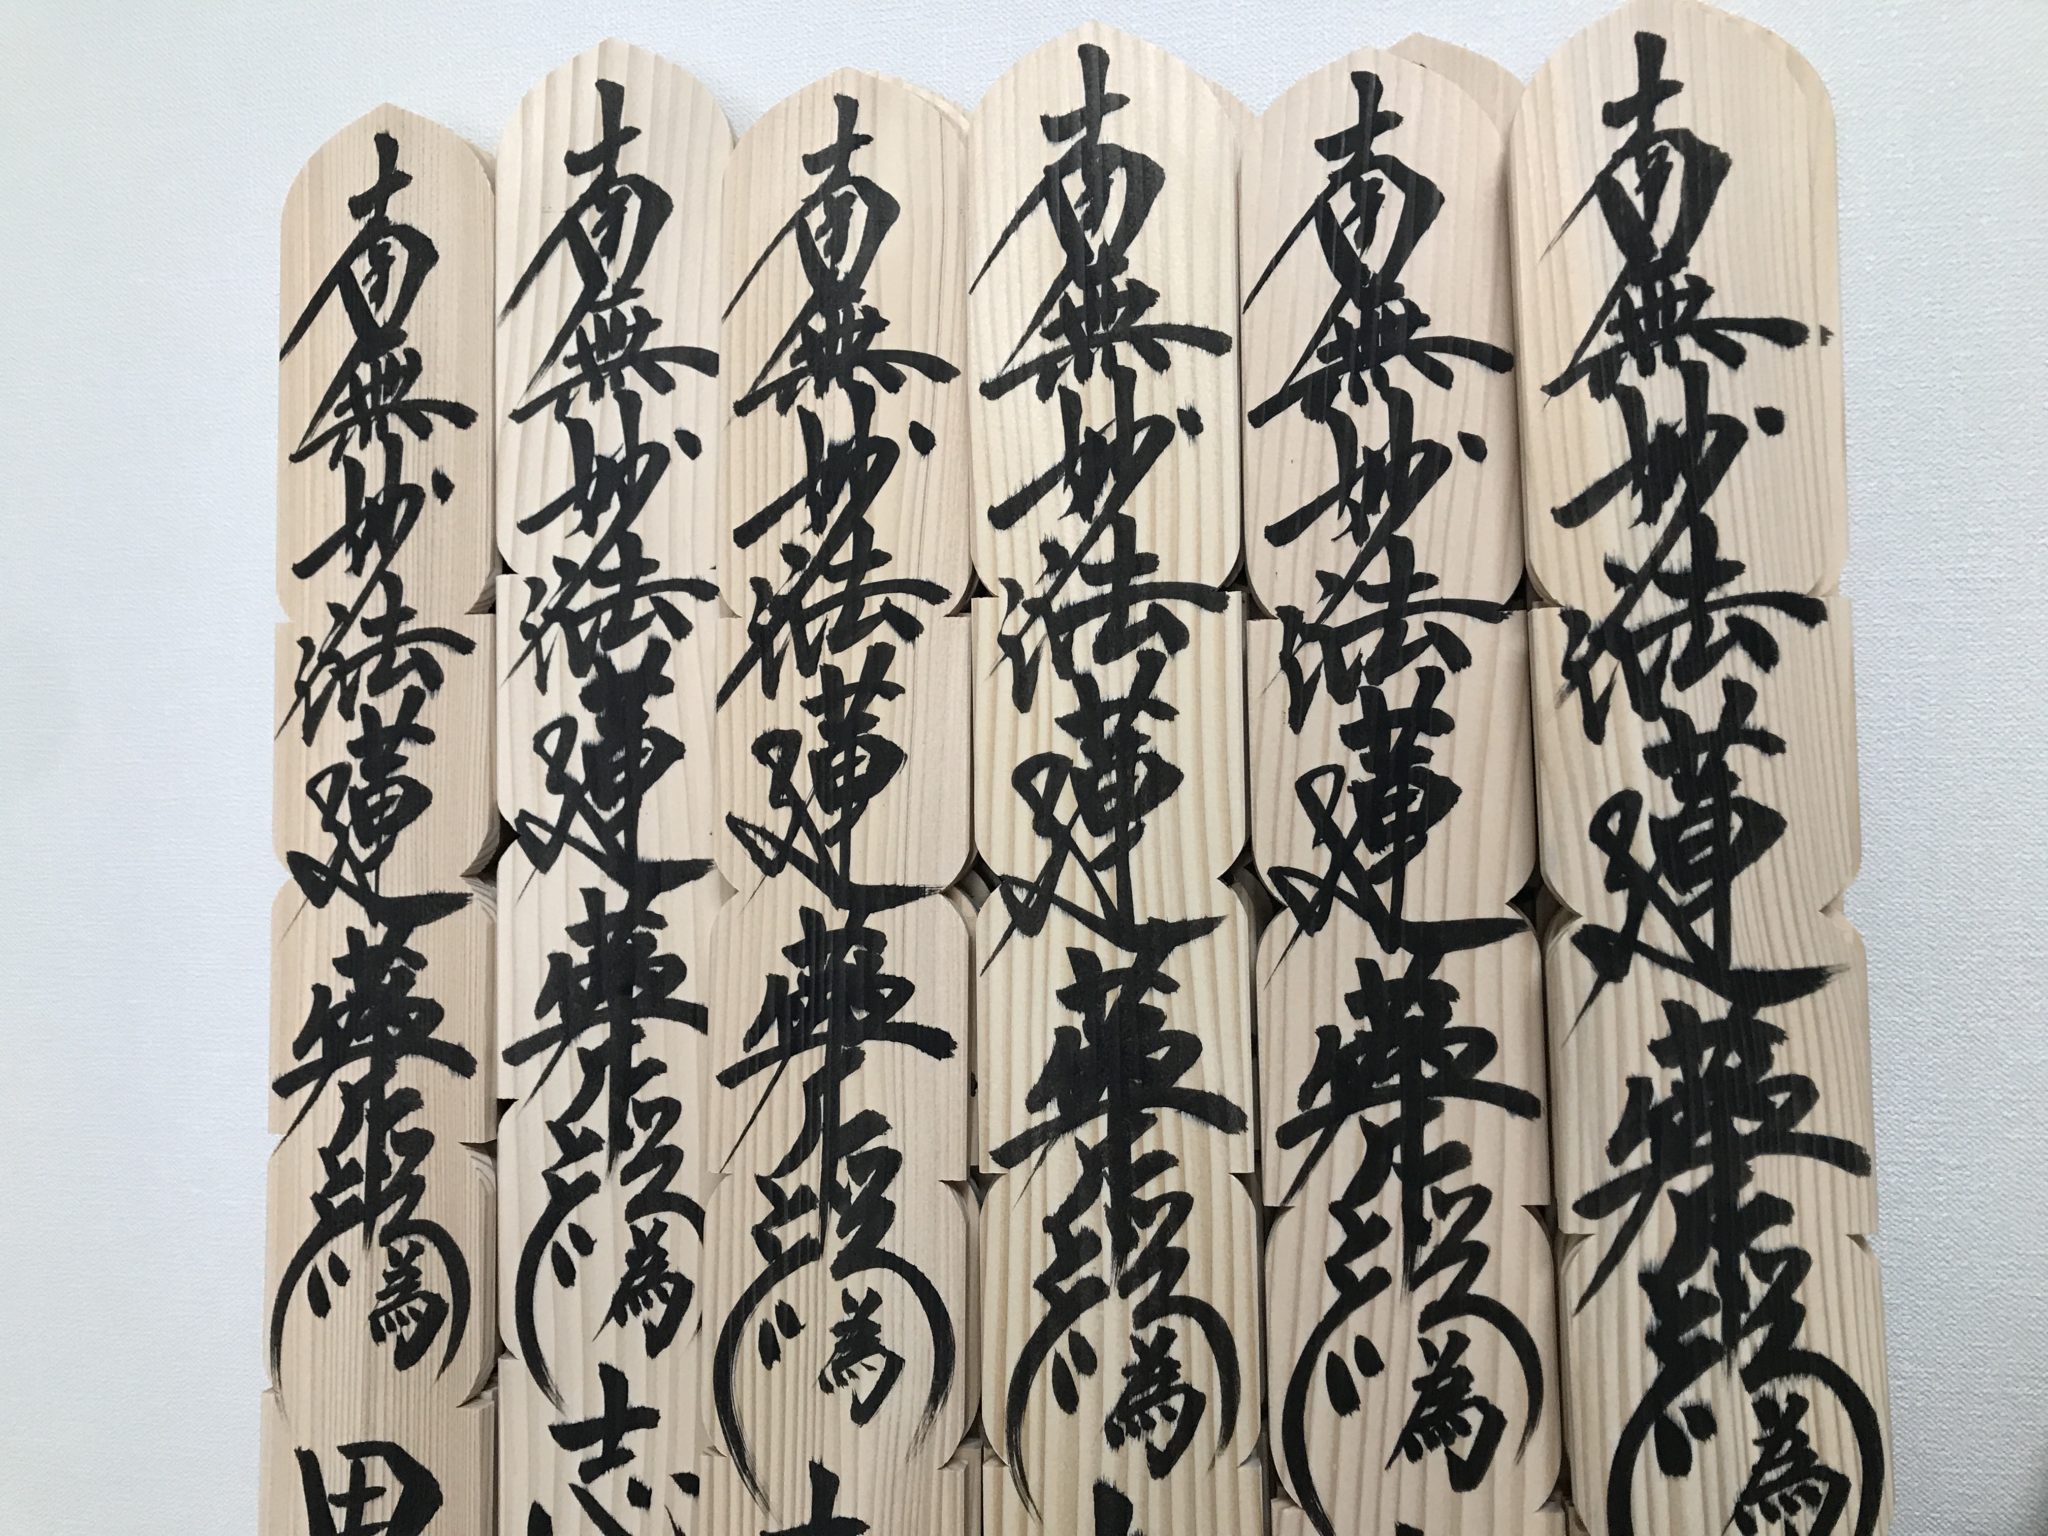 南無妙法蓮華経 為
南無妙法蓮華経 為
南無妙法蓮華経 為
南無妙法蓮華経 為
南無妙法蓮華経 為 志
南無妙法蓮華経 為